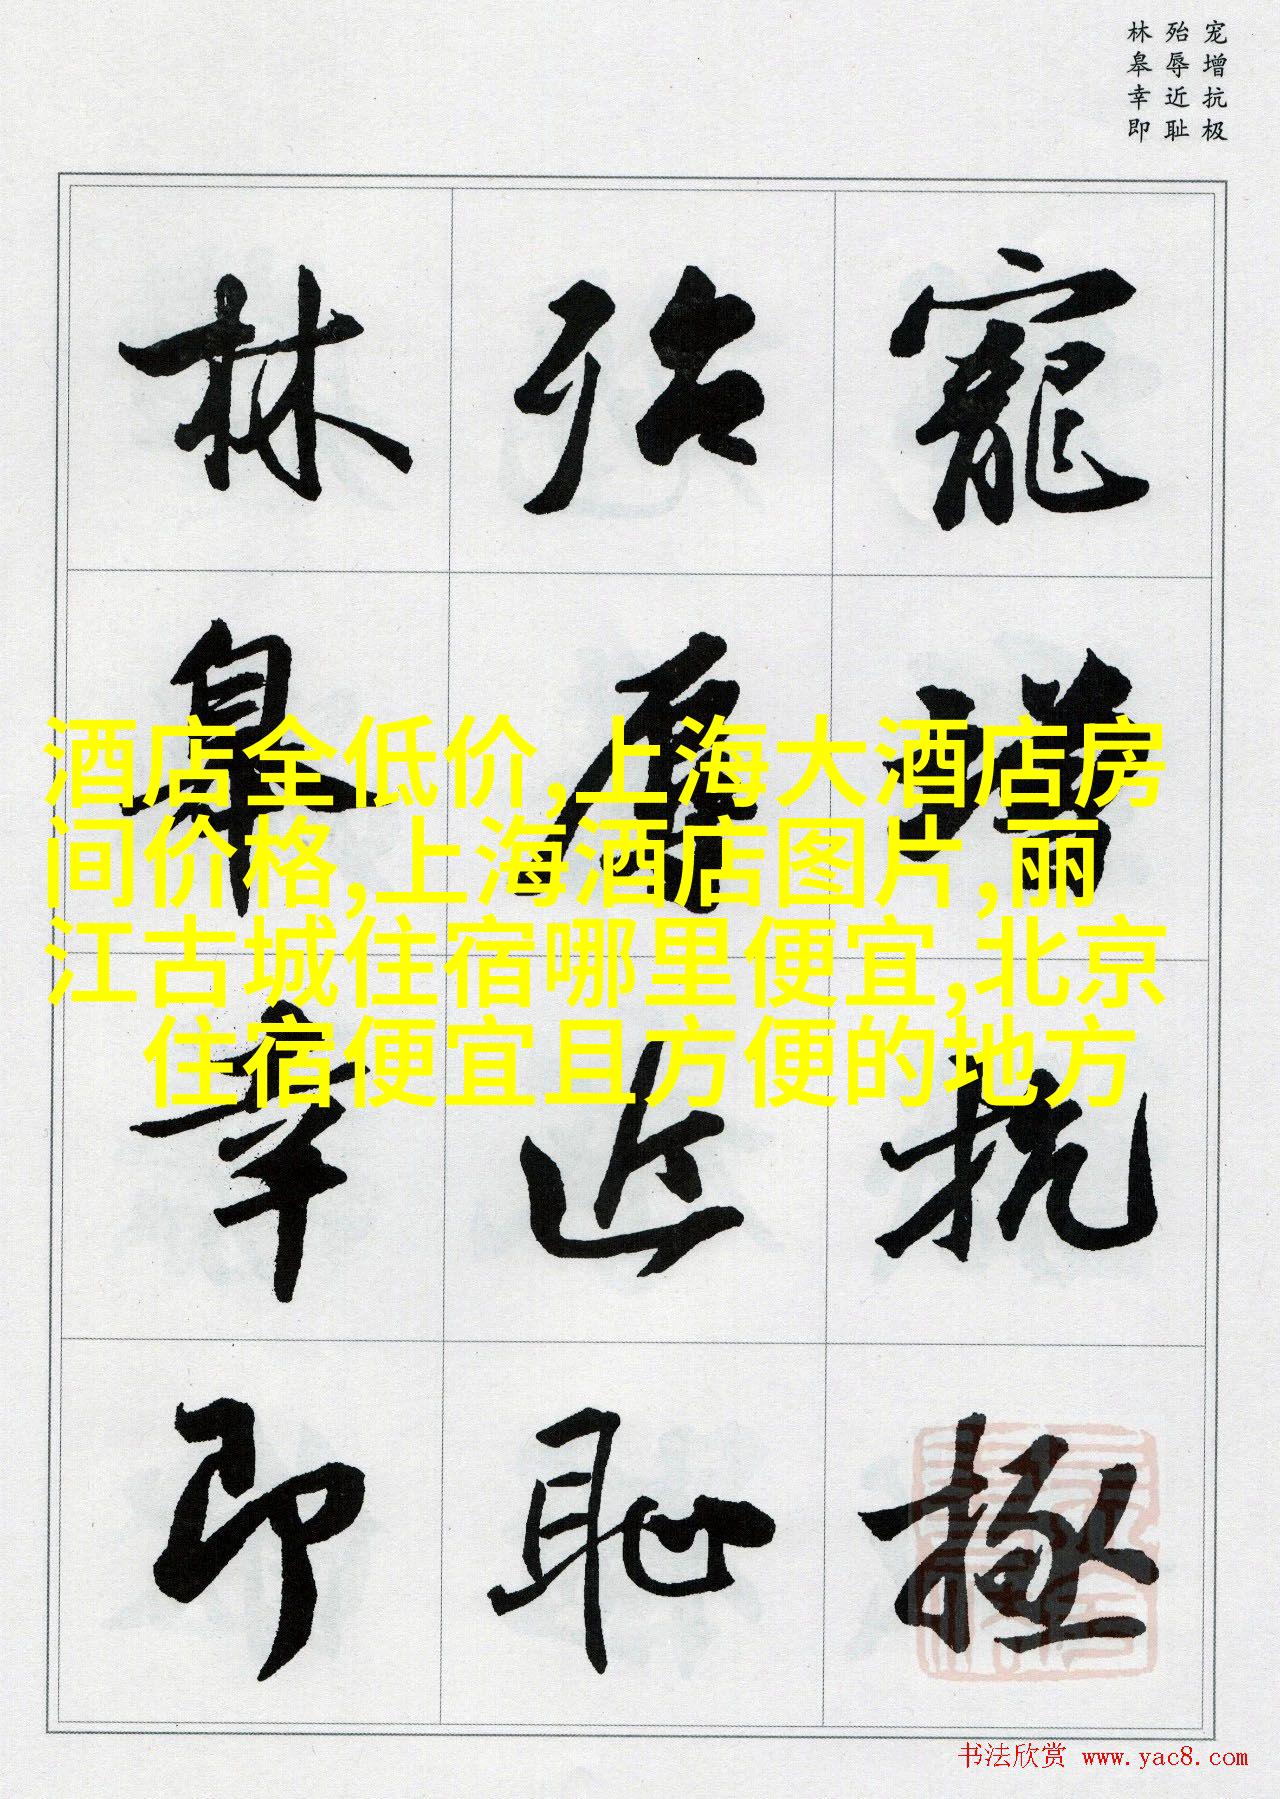 宠增抗极
殆辱近耻
林皋幸即
寵增抗極
殆辱近恥
林皋幸即
酒店全低价,上海大酒店房
间价格,上海酒店图片,丽
江古城住宿哪里便宜,北京
住宿便宜且方便的地方
书法欣赏 www.yac8.com